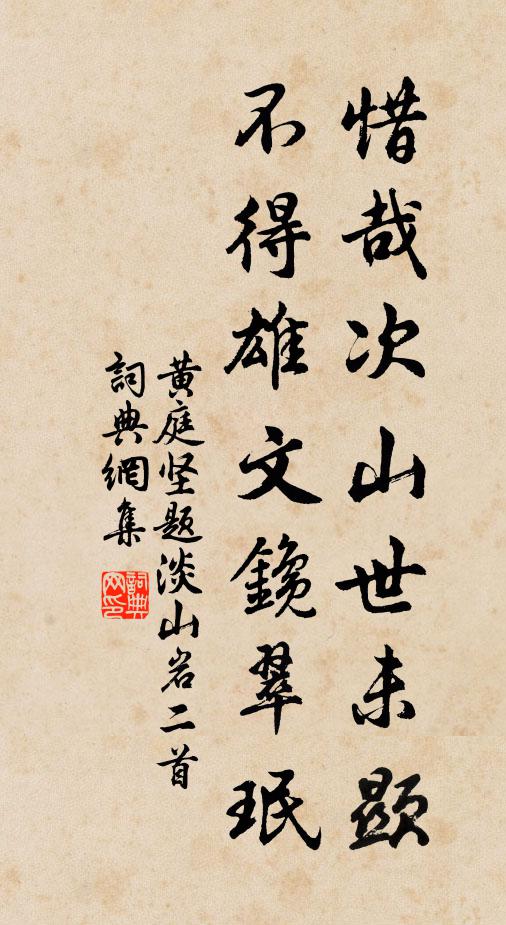 惜哉次山世未顯
不得雄文鑱翠珉
黄庭坚题淡山岩二首
詞典網集
詞典网印